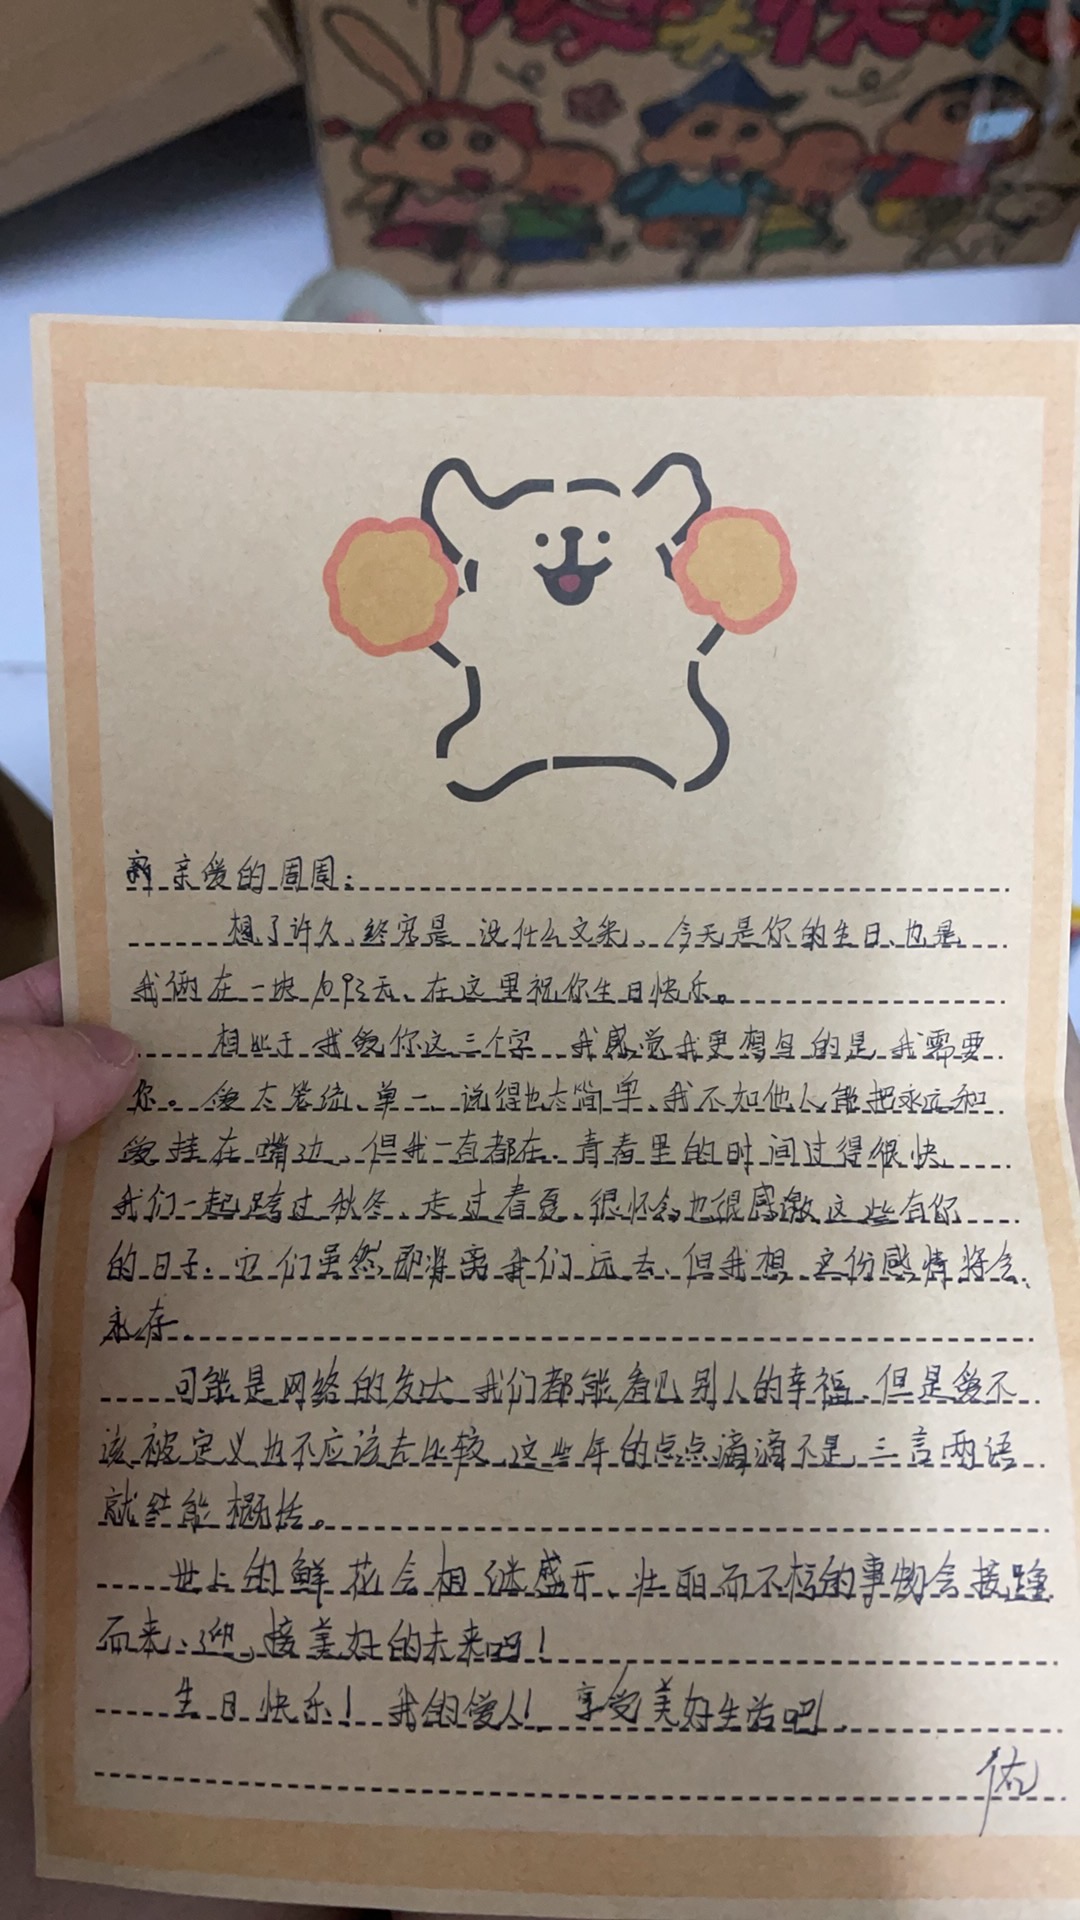 亲爱的周周：
想了许久、终究是没什么文采、今天是你的生日、也是
我俩在一块的天、在这里祝你生日快乐。
相比于我爱你这三个字 我感觉我更想
你。爱太笼统、单一、说得也太简单、我不如他人能把永远和
爱挂在嘴边、但我一直都在、青春里的时间过得很快、
我们一起跨过秋冬、走过春夏、很怀念也很感激这些有你
的日子、它们虽然即将离我们远去、但我想这份感情将会、
永存、
可能是网络的发达 我们都能看见别人的幸福、但是爱不
该被定义也不应该去比较、这些年的点点滴滴不是三言两语
就能概括。
世上的鲜花会相继盛开、壮丽而不朽的事物会接踵
而来、迎接美好的未来吧！
生日快乐！我的爱人！享受美好生活吧！
佑